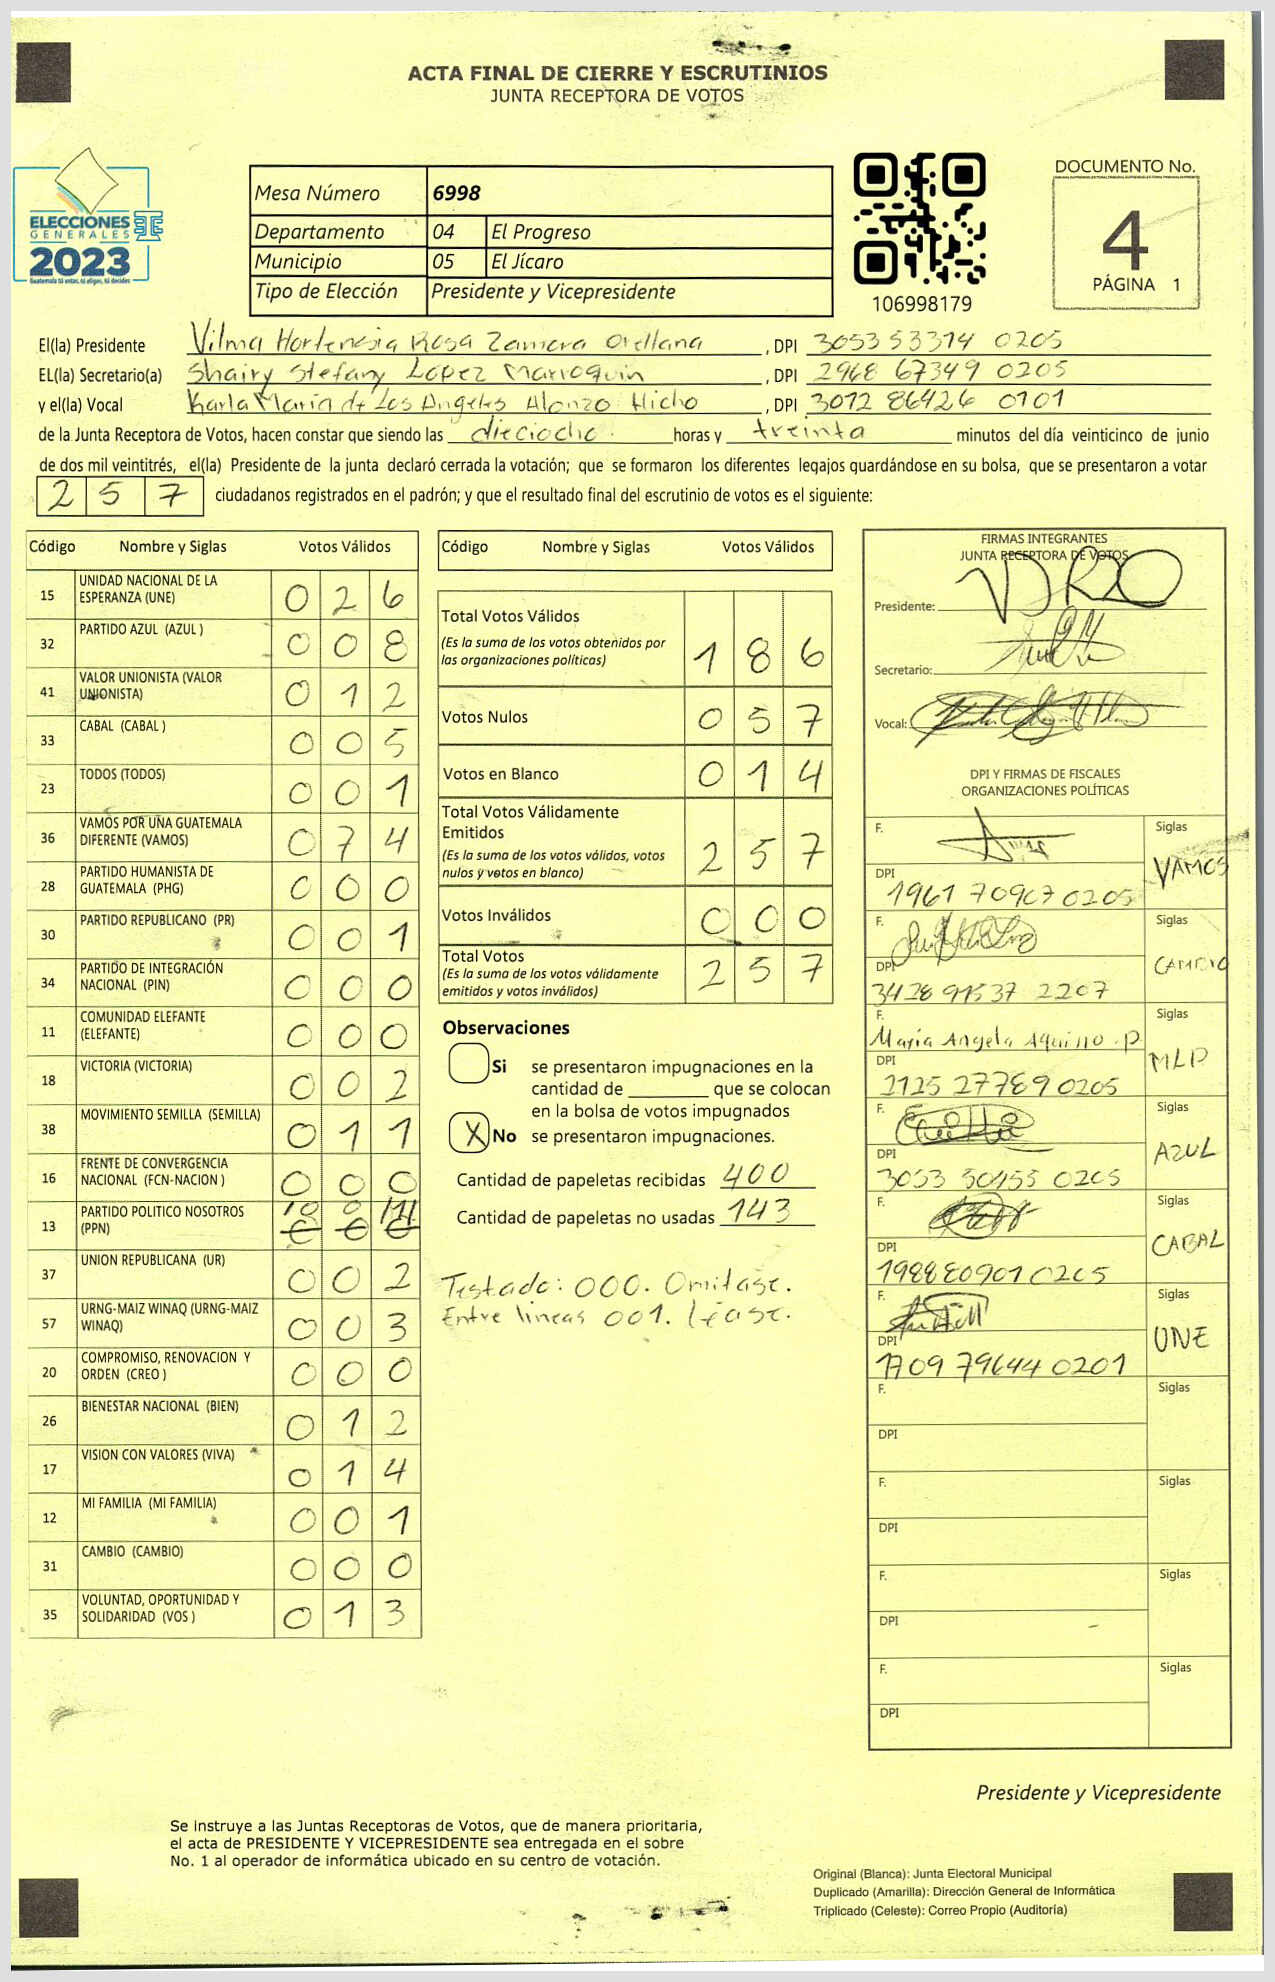 ACTA FINAL DE CIERRE Y ESCRUTINIOS
JUNTA RECEPTORA DE VOTOS
ELECCIONES
GENERALES
2023
Guatemala tú votas, tú eliges, tú decides
Mesa Número 6998
Departamento 04 El Progreso
Municipio 05 El Jícaro
Tipo de Elección Presidente y Vicepresidente
106998179
DOCUMENTO No.
4
PÁGINA 1
El(la) Presidente Vilma Hortensia Rosa Zamora Orellana, DPI 3053 53314 0205
EL(la) Secretario(a) Shairy Stefany López Marroquin, DPI 2968 67349 0205
y el(la) Vocal Karla María de Los Angeles Alonzo Hicho, DPI 3012 86426 0101
de la Junta Receptora de Votos, hacen constar que siendo las dieciocho horas y treinta minutos del día veinticinco de junio
de dos mil veintitrés, el(la) Presidente de la junta declaró cerrada la votación; que se formaron los diferentes legajos quardándose en su bolsa, que se presentaron a votar
2 5 7 ciudadanos registrados en el padrón; y que el resultado final del escrutinio de votos es el siguiente:
Código Nombre y Siglas Votos Válidos
15 UNIDAD NACIONAL DE LA ESPERANZA (UNE) 0 2 6
32 PARTIDO AZUL (AZUL ) 0 0 8
41 VALOR UNIONISTA (VALOR UNIONISTA) 0 1 2
33 CABAL (CABAL ) 0 0 5
23 TODOS (TODOS) 0 0 1
36 VAMOS POR UNA GUATEMALA DIFERENTE (VAMOS) 0 7 4
28 PARTIDO HUMANISTA DE GUATEMALA (PHG) 0 0 0
30 PARTIDO REPUBLICANO (PR) 0 0 1
34 PARTIDO DE INTEGRACIÓN NACIONAL (PIN) 0 0 0
11 COMUNIDAD ELEFANTE (ELEFANTE) 0 0 0
18 VICTORIA (VICTORIA) 0 0 2
38 MOVIMIENTO SEMILLA (SEMILLA) 0 1 1
16 FRENTE DE CONVERGENCIA NACIONAL (FCN-NACION ) 0 0 0
13 PARTIDO POLITICO NOSOTROS (PPN) 0 0 1
37 UNION REPUBLICANA (UR) 0 0 2
57 URNG-MAIZ WINAQ (URNG-MAIZ WINAQ) 0 0 3
20 COMPROMISO, RENOVACION Y ORDEN (CREO ) 0 0 0
26 BIENESTAR NACIONAL (BIEN) 0 1 2
17 VISION CON VALORES (VIVA) 0 1 4
12 MI FAMILIA (MI FAMILIA) 0 0 1
31 CAMBIO (CAMBIO) 0 0 0
35 VOLUNTAD, OPORTUNIDAD Y SOLIDARIDAD (VOS ) 0 1 3
Código Nombre y Siglas Votos Válidos
Total Votos Válidos
(Es la suma de los votos obtenidos por
las organizaciones políticas) 1 8 6
Votos Nulos 0 5 7
Votos en Blanco 0 1 4
Total Votos Válidamente
Emitidos
(Es la suma de los votos válidos, votos
nulos y votos en blanco) 2 5 7
Votos Inválidos 0 0 0
Total Votos
(Es la suma de los votos válidamente
emitidos y votos inválidos) 2 5 7
Observaciones
Si se presentaron impugnaciones en la
cantidad de que se colocan
en la bolsa de votos impugnados
X No se presentaron impugnaciones.
Cantidad de papeletas recibidas 400
Cantidad de papeletas no usadas 143
Testado: 000. Omitase.
Entre lineas 001. Léase.
FIRMAS INTEGRANTES
JUNTA RECEPTORA DE VOTOS
Presidente:
Secretario:
Vocal:
DPI Y FIRMAS DE FISCALES
ORGANIZACIONES POLÍTICAS
F. Siglas
VAMOS
DPI
1961 70907 0205
F. Siglas
CAMBIO
DPI
3428 91537 2207
F. Siglas
María Angela Aquino .P
MLP
DPI
2125 27789 0205
F. Siglas
AZUL
DPI
3053 50455 0205
F. Siglas
CABAL
DPI
1988 80901 0205
F. Siglas
UNE
DPI
1709 79644 0201
F. Siglas
DPI
F. Siglas
DPI
F. Siglas
DPI
F. Siglas
DPI
Presidente y Vicepresidente
Se instruye a las Juntas Receptoras de Votos, que de manera prioritaria,
el acta de PRESIDENTE Y VICEPRESIDENTE sea entregada en el sobre
No. 1 al operador de informática ubicado en su centro de votación.
Original (Blanca): Junta Electoral Municipal
Duplicado (Amarilla): Dirección General de Informática
Triplicado (Celeste): Correo Propio (Auditoría)